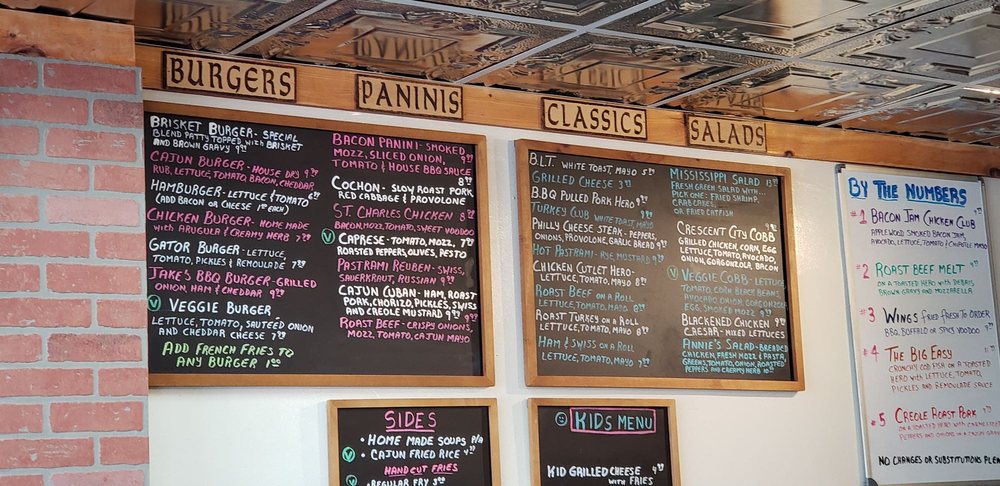 BURGERS
PANINIS
CLASSICS
SALADS
BRISKET BURGER - SPECIAL
BLEND PATTY TOPPED WITH BRISKET
AND BROWN GRAVY
CAJUN BURGER - HOUSE DRY
RUB, LETTUCE, TOMATO, BACON, CHEDDAR
HAMBURGER - LETTUCE & TOMATO
(ADD BACON OR CHEESE EACH)
CHICKEN BURGER - HOME MADE
WITH ARUGULA & CREAMY HERB
GATOR BURGER - LETTUCE,
TOMATO, PICKLES & REMOULADE
JAKE'S BBQ BURGER - GRILLED
ONION, HAM & CHEDDAR
V VEGGIE BURGER
LETTUCE, TOMATO, SAUTEED ONION
AND CHEDDAR CHEESE
ADD FRENCH FRIES TO
ANY BURGER
BACON PANINI - SMOKED
MOZZ, SLICED ONION,
TOMATO & HOUSE BBQ SAUCE
COCHON - SLOW ROAST PORK
RED CABBAGE & PROVOLONE
ST. CHARLES CHICKEN
BACON, MOZZ, TOMATO, SWEET VOODOO
V CAPRESE - TOMATO, MOZZ,
ROASTED PEPPERS, OLIVES, PESTO
PASTRAMI REUBEN - SWISS,
SAUERKRAUT, RUSSIAN
CAJUN CUBAN - HAM, ROAST
PORK, CHORIZO, PICKLES, SWISS
AND CREOLE MUSTARD
ROAST BEEF - CRISPY ONIONS,
MOZZ, TOMATO, CAJUN MAYO
B.L.T. WHITE TOAST, MAYO
GRILLED CHEESE
B.BQ PULLED PORK HERO
TURKEY CLUB WHITE TOAST, MAYO
PHILLY CHEESE STEAK - PEPPERS,
ONIONS, PROVOLONE, GARLIC BREAD
HOT PASTRAMI - RYE, MUSTARD
CHICKEN CUTLET HERO -
LETTUCE, TOMATO, MAYO
ROAST BEEF ON A ROLL
LETTUCE, TOMATO, MAYO
ROAST TURKEY ON A ROLL
LETTUCE, TOMATO, MAYO
HAM & SWISS ON A ROLL
LETTUCE, TOMATO, MAYO
MISSISSIPPI SALAD
FRESH GREEN SALAD WITH...
PICK ONE: FRIED SHRIMP,
CRAB CAKES,
OR FRIED CATFISH
CRESCENT CITY COBB
GRILLED CHICKEN, CORN, EGG
LETTUCE, TOMATO, AVOCADO,
ONION, GORGONZOLA, BACON
V VEGGIE COBB - LETTUCE
TOMATO CORN BLACK BEANS,
AVOCADO ONION GORGONZOLA
EGG, SMOKED MOZZ
BLACKENED CHICKEN
CAESAR - MIXED LETTUCES
ANNIE'S SALAD - BREADED
CHICKEN, FRESH MOZZ & PASTA,
GREENS, TOMATO, ONION, ROASTED
PEPPERS AND CREAMY HERB
BY THE NUMBERS
#1 BACON JAM CHICKEN CLUB
APPLEWOOD SMOKED BACON JAM,
AVOCADO, LETTUCE, TOMATO & CHIPOTLE MAYO
#2 ROAST BEEF MELT
ON A TOASTED HERO WITH DEBRIS
BROWN GRAVY AND MOZZARELLA
#3 WINGS FRIED FRESH TO ORDER
BBQ, BUFFALO OR SPICY VOODOO
#4 THE BIG EASY
CRUNCHY COD FISH ON A TOASTED
HERO WITH LETTUCE, TOMATO,
PICKLES AND REMOULADE SAUCE
#5 CREOLE ROAST PORK
ON A TOASTED HERO WITH
PEPPERS AND ONIONS IN A
NO CHANGES OR SUBSTITUTIONS
SIDES
• HOME MADE SOUPS P/A
V • CAJUN FRIED RICE
HAND CUT FRIES
V • REGULAR FRY
KIDS MENU
KID GRILLED CHEESE
WITH FRIES